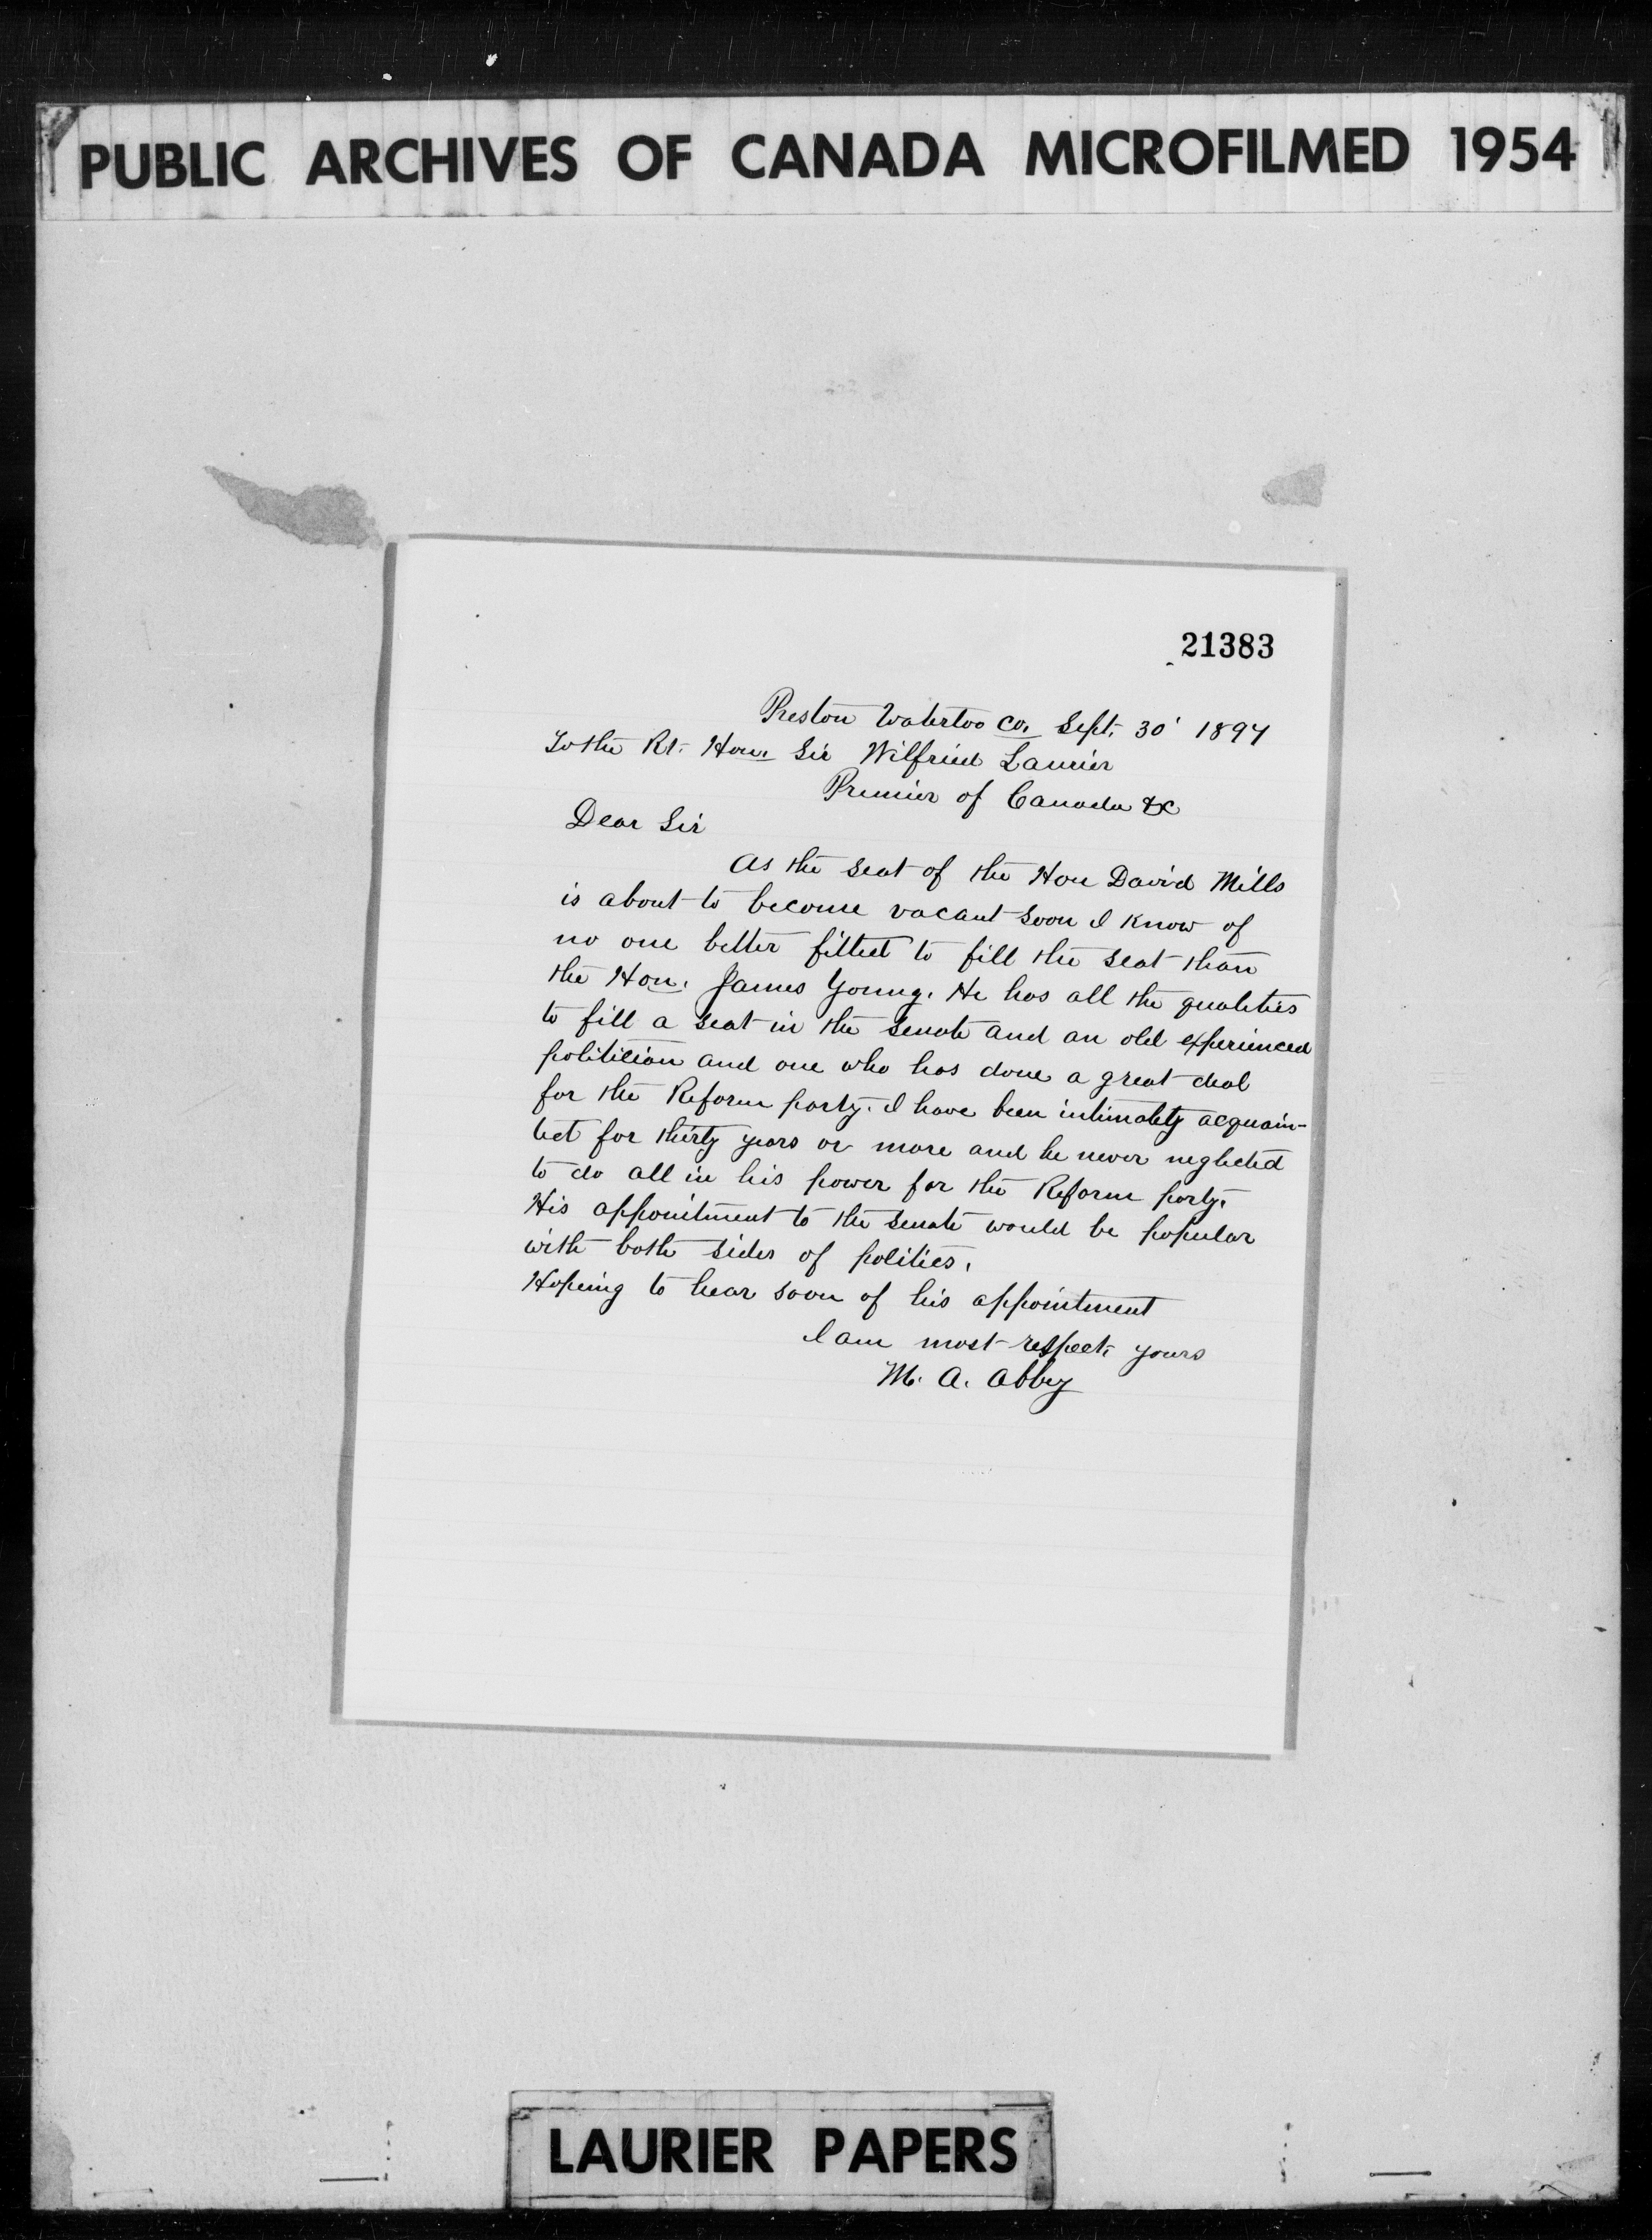 PUBLIC ARCHIVES OF CANADA MICROFILMED 1954
21383
Preston Waterloo Co. Sept. 30' 1897
To the Rt. Hon. Sir Wilfried Laurier
Premier of Canada &c
Dear Sir
As the seat of the Hon David Mills
is about to become vacant soon I know of
no one better fitted to fill the seat than
the Hon. James Young. He has all the qualities
to fill a seat in the senate and an old experienced
politician and one who has done a great deal
for the Reform party. I have been intimately acquain-
tet for thirty years or more and he never neglected
to do all in his power for the Reform party.
His appointment to the senate would be popular
with both sides of politics.
Hoping to hear soon of his appointment
I am most respect. yours
M. A. Abbey
LAURIER PAPERS